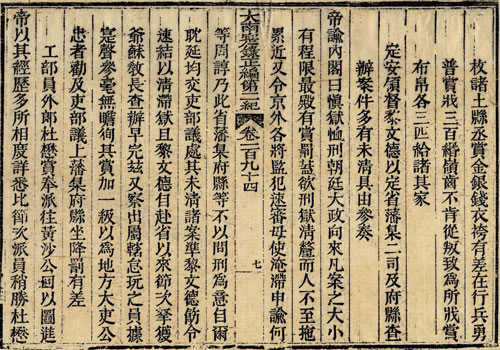 枚諸土縣丞賞金銀錢衣袴有差在行兵勇
普賞錢三百緡不肯從叛致為所戕賞
布帛各三匹給諸其家
定安督黎文德以定省藩臬二司及府縣查
辦案件多有未清具由參奏
帝諭內閣曰慎獄恤刑朝廷大政向來凡案之大小
有程限最殿有賞罰蓋欲刑獄清釐而人不至拖
累近又令京外各將監犯速審毋使淹滯申諭何
大南寔錄正編第二紀 卷一百九十四 七
等周諄乃此省藩臬府縣等不以問刑為意自爾
耽延均交吏部議處其未清諸案準黎文德飭令
速結以清滯獄且黎文德自赴省以來節次舉獲
爺蘇敎長查辦早完茲又察出屬轄怠玩之員據
寔聲參毫無瞻徇其賞加一級以為地方大吏公
忠者勸及吏部議上藩臬府縣坐降罰有差
工部員外郎杜懋賞奉派往黃沙公回以圖進
帝以其經歷多所相度詳悉比節次派員稍勝杜懋